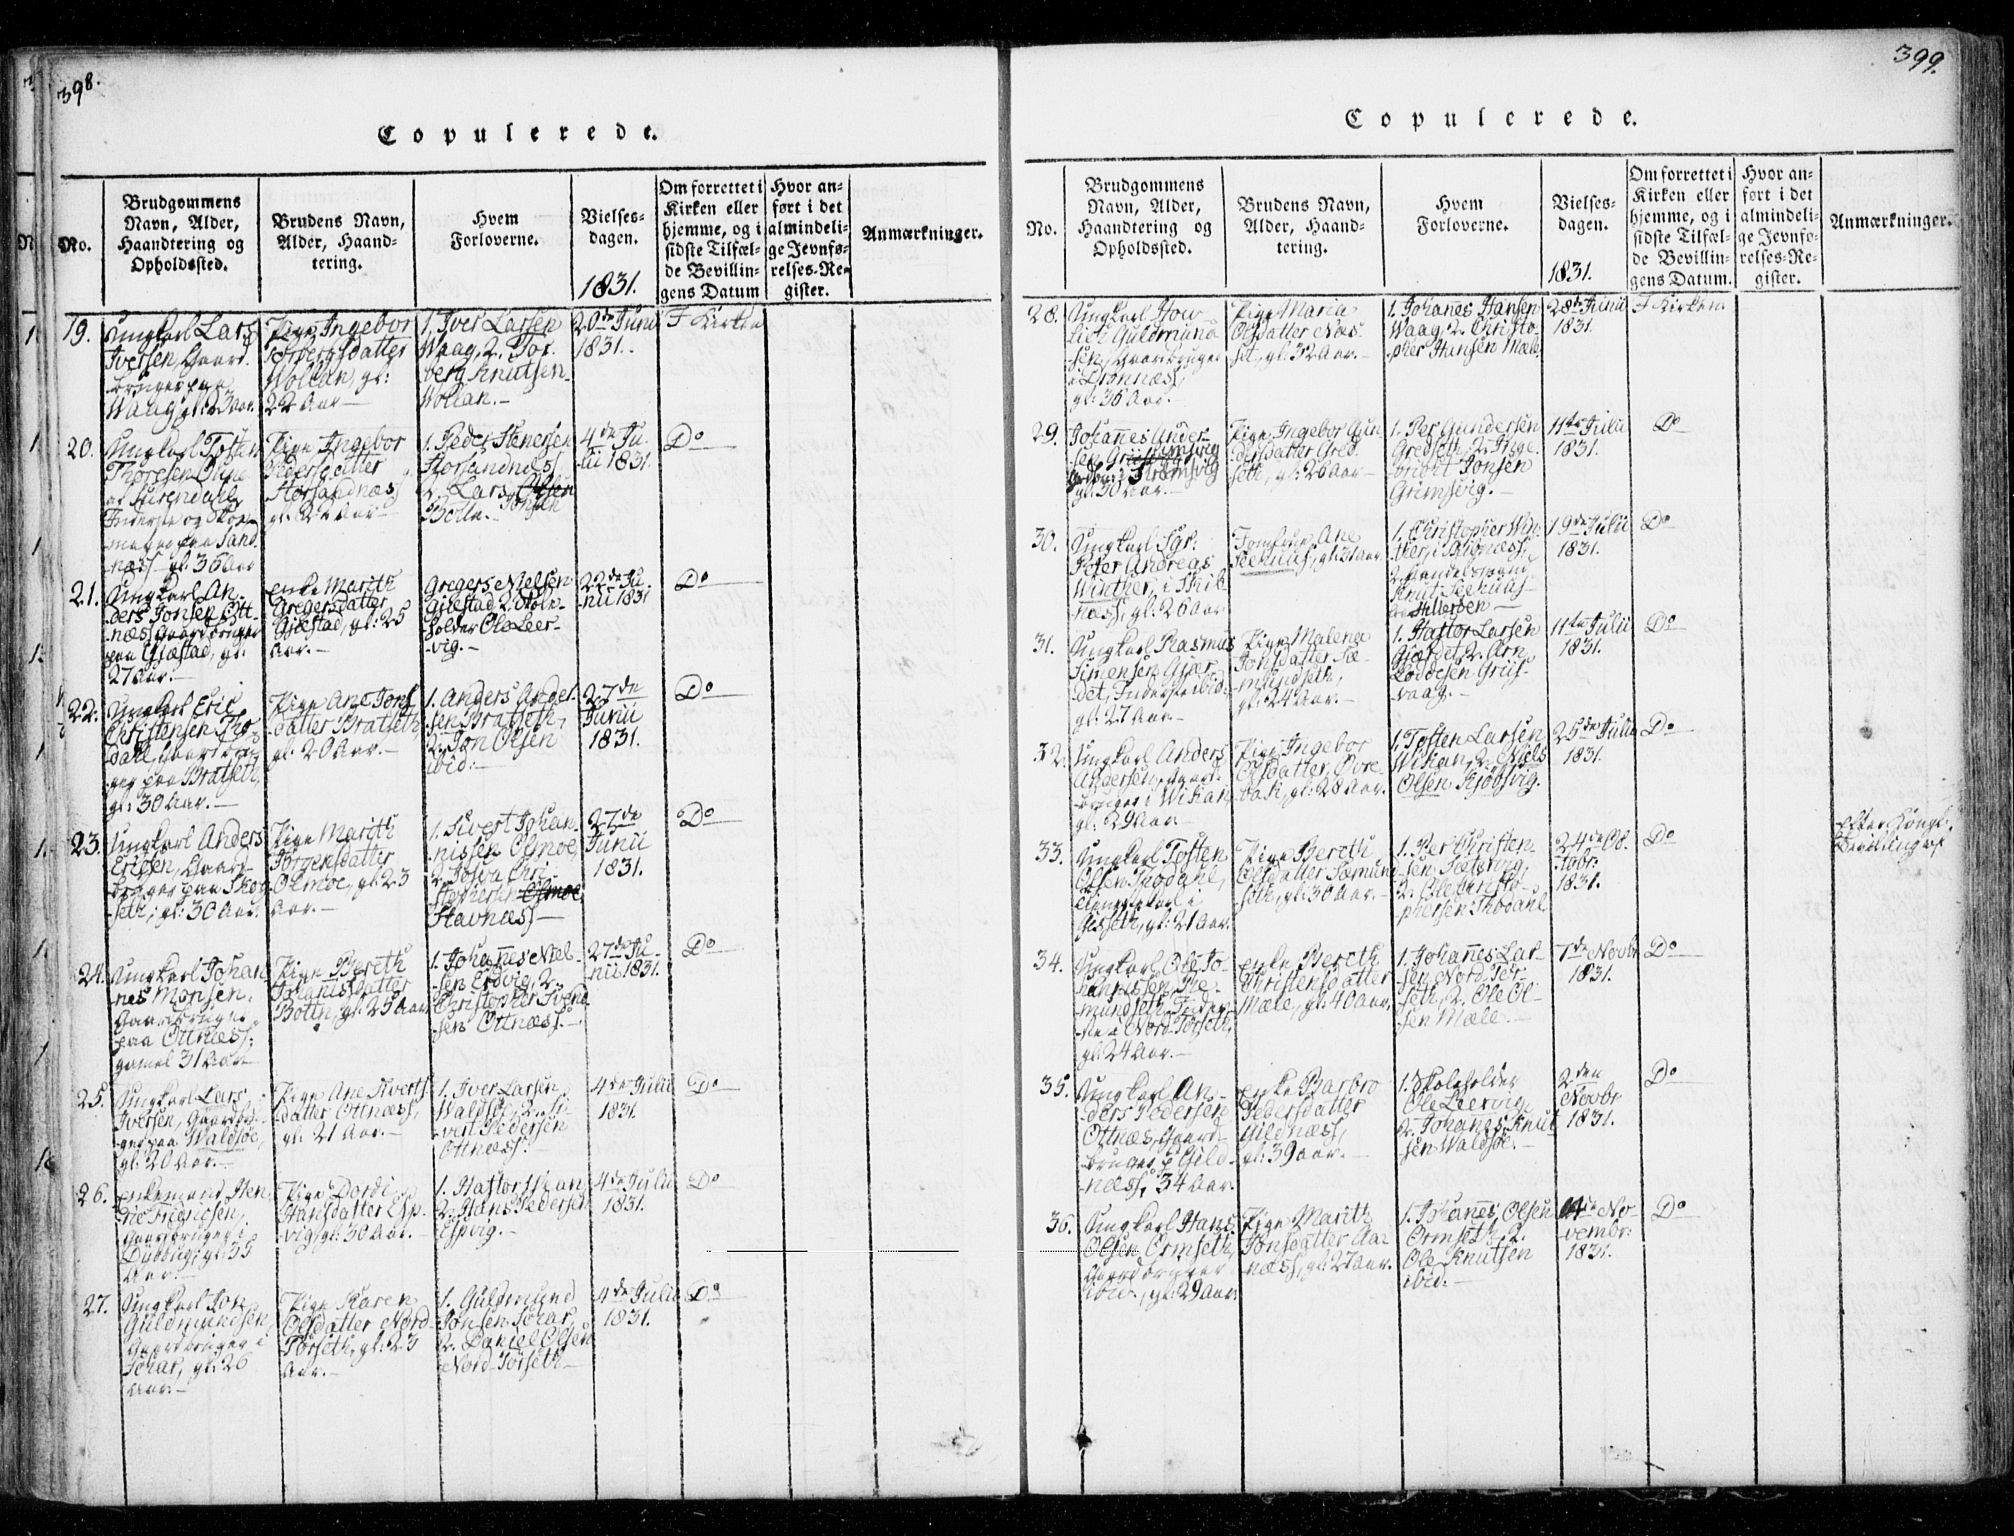 398.
Copulerede.
No.
Brudgommens
Navn, Alder,
Haandtering og
Opholdssted.
Brudens Navn,
Alder, Haand-
tering.
Hvem
Forloverne.
Vielses-
dagen.
1831.
Om forrettet i
Kirken eller
hjemme, og i
sidste Tilfæl-
de Bevillin-
gens Datum
Hvor an-
ført i det
almindeli-
ge Jevnfø-
relses-Re-
gister.
Anmærkninger.
19.
Ungkarl Lars
Iversen, Gaard-
bruger paa
Waag, gl: 23 Aar.
Pige Ingebor
Torbergsdatter
Wollan, gl:
22 Aar
1. Iver Larsen
Waag, 2. Tor-
berg Knutsen
Wollan.
20de Junii
1831.
I Kirken
20.
Ungkarl Tosten
Thoresen
Inderste og Skoe-
mager paa Sand-
næss gl. 36 Aar
Pige Ingebor
Pedersdatter
Storsandnæss
gl. 22 Aar
1. Peder Stenersen
Storsandnæss
2. Lars Olsen
Botten. Jonsen
4de Ju-
lii 1831.
Do
21.
Ungkarl An-
ders Jonsen Ott-
næss Gaardbruger
paa Gjæstad, gl.
27 Aar.
Enke Marith
Gregersdatter
Gjæstad, gl: 25
Aar.
Gregers Nielsen
Gjæstad 2. Skole-
holder Ole Leer-
vig.
22de Ju-
nii 1831
Do
22.
Ungkarl Eric
Christensen Tho-
dahl, Gaardbru-
ger paa Bratseth,
gl: 30 Aar.
Pige Ane Jons
datter Bratseth,
gl: 20 Aar.
1. Anders Ander-
sen Bratseth,
2. Jon Olsen
ibid:
27de
Junii
1831.
Do
23.
Ungkarl Anders
Ericsen, Gaard-
bruger paa Skog-
seth, gl: 30 Aar.
Pige Marith
Jørgensdatter
Olmoe, gl: 23
Aar.
1. Sivert Johan-
nissen Olmoe,
2. Chri-
stophersen Olmoe
Stavnæss
27de
Junii
1831.
Do
24.
Ungkarl Johan-
nes Monsen,
Gaardbruger
paa Ottnæss,
gamel 31 Aar
Pige Bereth
Johanisdatter
Bottn, gl: 25 Aar
1. Johannes Niel-
sen Erdvig, 2.
Christopher Svend-
sen Ottnæss.
27de Ju-
nii 1831.
Do
25.
Ungkarl Lars
Iversen, Gaardbru-
ger paa Waldsøe,
gl: 20 Aar.
Pige Ane Siverts-
datter Ottnæss,
gl: 21 Aar.
1. Iver Larsen
Waldsøe, 2. Si-
vert Pedersen
Ottnæss.
4de Julii
1831.
Do
26.
Enkemand Hen-
ric Friderichsen,
Gaardbruger i
gl: 35
Aar.
Pige Dordi
Hansdatter Esp-
vig, gl: 30 Aar.
1. Hastor Moan
2. Hans Pedersen
Espvig.
4de Julii
1831.
Do
27.
Ungkarl Jon
Guldmundsen,
Gaardbruger i
Schar, gl: 26
Aar.
Pige Karen
Olsdatter Nord
Torseth, gl: 23
Aar.
1. Guldmund
Jonsen Schar,
2. Daniel Olsen
Nord-Torseth
4de Julii
1831.
Do
399.
Copulerede.
No.
Brudgommens
Navn, Alder,
Haandtering og
Opholdssted.
Brudens Navn,
Alder, Haand-
tering.
Hvem
Forloverne.
Vielses-
dagen.
1831.
Om forrettet i
Kirken eller
hjemme, og i
sidste Tilfæl-
de Bevillin-
gens Datum.
Hvor an-
ført i det
almindeli-
ge Jevnfø-
relses-Re-
gister.
Anmærkninger.
28.
Ungkarl
Guldmund-
sen, Gaardbruger
i Drønnæss,
gl: 36 Aar.
Pige Maria
Olsdatter Næs-
set, gl: 32 Aar.
1. Johanes Hansen
Waag, 2. Christo-
pher Hansen Mæle
28de Junii
1831.
I Kirken
29.
Johannes Ander-
sen
Strømsvig
gl. 30 Aar.
Pige Ingebor Gun-
dersdatter Gred-
seth, gl: 26 Aar
1. Per Gundersen
Gredseth, 2. Inge-
brigt Jonsen
Grimsvig.
11te Julii
1831.
Do
30.
Ungkarl Sgr.
Peter Andreas
Winther, i
gl: 26 Aar
Jomfrue Ane
Seehuus, gl: 31 Aar.
1. Christopher Win-
ther,
2. Handelsmand
Knut Seehuus
19de Julii
1831.
Do
31.
Ungkarl Rasmus
Simensen Gjær-
det, Inderste ibid:
gl: 27 Aar
Pige Malene
Jonsdatter Sæ-
mundseth,
gl: 24 Aar.
1. Hastor Larsen
Gjærdet, 2. Arn
Lodoesen Griis-
vaag.
11te Julii
1831.
Do
32.
Ungkarl Anders
Andersen, Gaard-
bruger i Wikan
gl: 29 Aar
Pige Ingebor
Olsdatter Øvre-
bak, gl: 28 Aar.
1. Tosten Larsen
Wikan, 2. Niels
Olsen Kjøbsvig.
25de Julii
1831.
Do
33.
Ungkarl Tosten
Olsen Thodahl,
Tienestekarl i
Gisseth, gl: 21 Aar.
Pige Bereth
Olsdatter Sæmund-
seth, gl: 30 Aar.
1. Per Christen-
sen Sætervig,
2. Ole Christo-
phersen Thodahl
24de Oc-
tobr:
1831.
Do
Efter Kongl:
Bevilling af
34.
Ungkarl Ole Jo-
hannissen Sæ-
mundseth, Inder-
ste i Nord-Torseth,
gl: 24 Aar.
Enke Bereth
Christensdatter
Mæle, gl: 40 Aar.
1. Johannes Lar-
sen Nord-Tor-
seth, 2. Ole Ol-
sen Mæle.
7de Novbr
1831.
Do
35.
Ungkarl An-
ders Pedersen
Ottnæs, Gaard-
bruger p Gild-
næss, 34 Aar.
Enke Barbro
Pedersdatter
Gildnæss,
gl: 39 Aar.
1. Skoleholder
Ole Leervig
2. Johanes Knut-
sen Waldsøe.
2den
Novbr
1831.
Do
36.
Ungkarl Hans
Olsen Ormseth,
Gaardbruger
ibid., gl: 29 Aar
Pige Marith
Jonsdatter Aar-
næss, gl: 27 Aar.
1. Johanes Olsen
Ormseth, 2.
Ole Knutsen
ibid.
14de No-
vembr:
1831.
Do